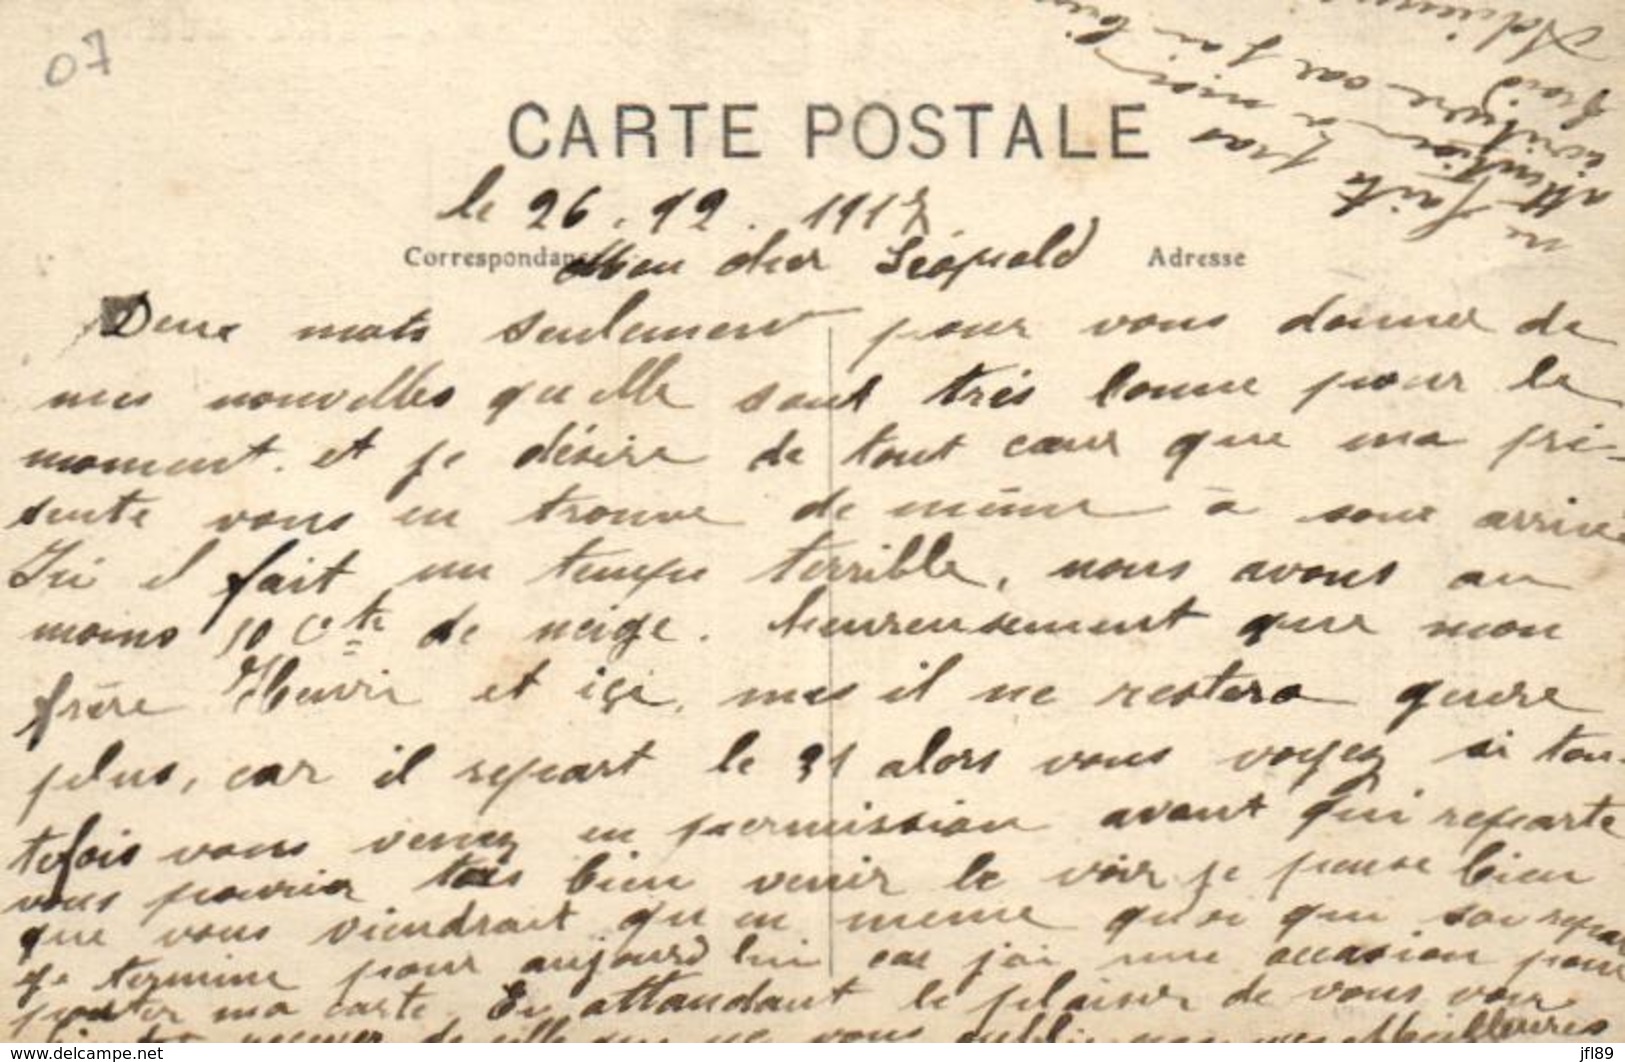 07
CARTE POSTALE
le 26. 12. 1917
Correspondance
Mon cher Léopold
Adresse
Deux mots seulement pour vous donner de
mes nouvelles qu elle sont très bonne pour le
moment. et je désire de tout cœur que ma pré-
sente vous en trouve de même à sont arrivé
Ici il fait un temps terrible, nous avons au
moins 10 Cte de neige. heureusement que mon
frère Henri et içi, mes il ne restera guere
plus, car il repart le 31 alors vous voyez si tou-
tefois vous venez en permission avant qui reparte
vous pourier tres bien venir le voir je pense bien
que vous viendrait qu en meme
je termine pour aujourd hui car jai une occasion pour
porter ma carte. En attandant le plaisir de vous voir
recever de elle que ne vous oublie pas mes Meilleures
ne faite pas
attention a mon
écriture car j ai
froid
www.delcampe.net
jfl89